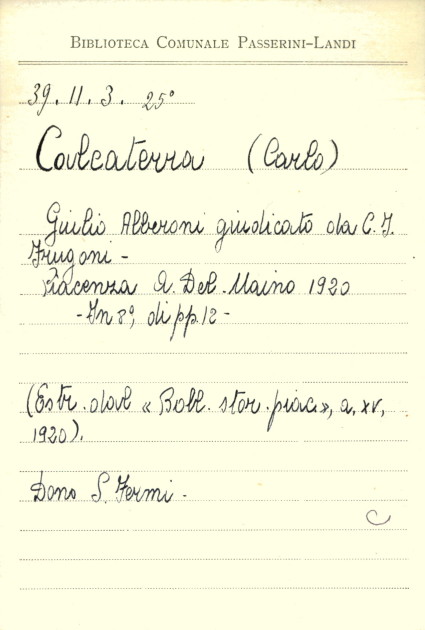 BIBLIOTECA COMUNALE PASSERINI-LANDI
39.11.3. 25°
Calcaterra (Carlo)
Giulio Alberoni giudicato da C. I.
Frugoni -
Piacenza A. Del Maino 1920
- In 8°, di pp. 12 -
(Estr. dal « Boll. stor. piac.», a. XV,
1920).
Dono S. Fermi -
C